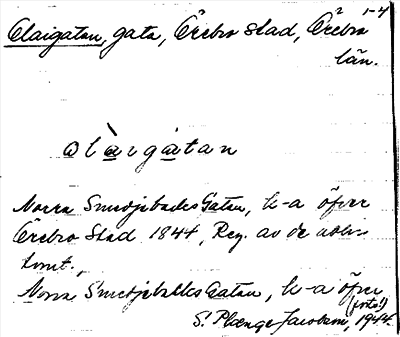 Olaigatan, gata, Örebro stad, Örebro 1-4
län.
olàigátan
Norra Smedjebacks Gatan, k-a öfver
Örebro Stad 1844, Reg. av de
Norra Smedjebacks Gatan, k-a öfver
(foto!)
S. Plænge Jacobson, 1944.